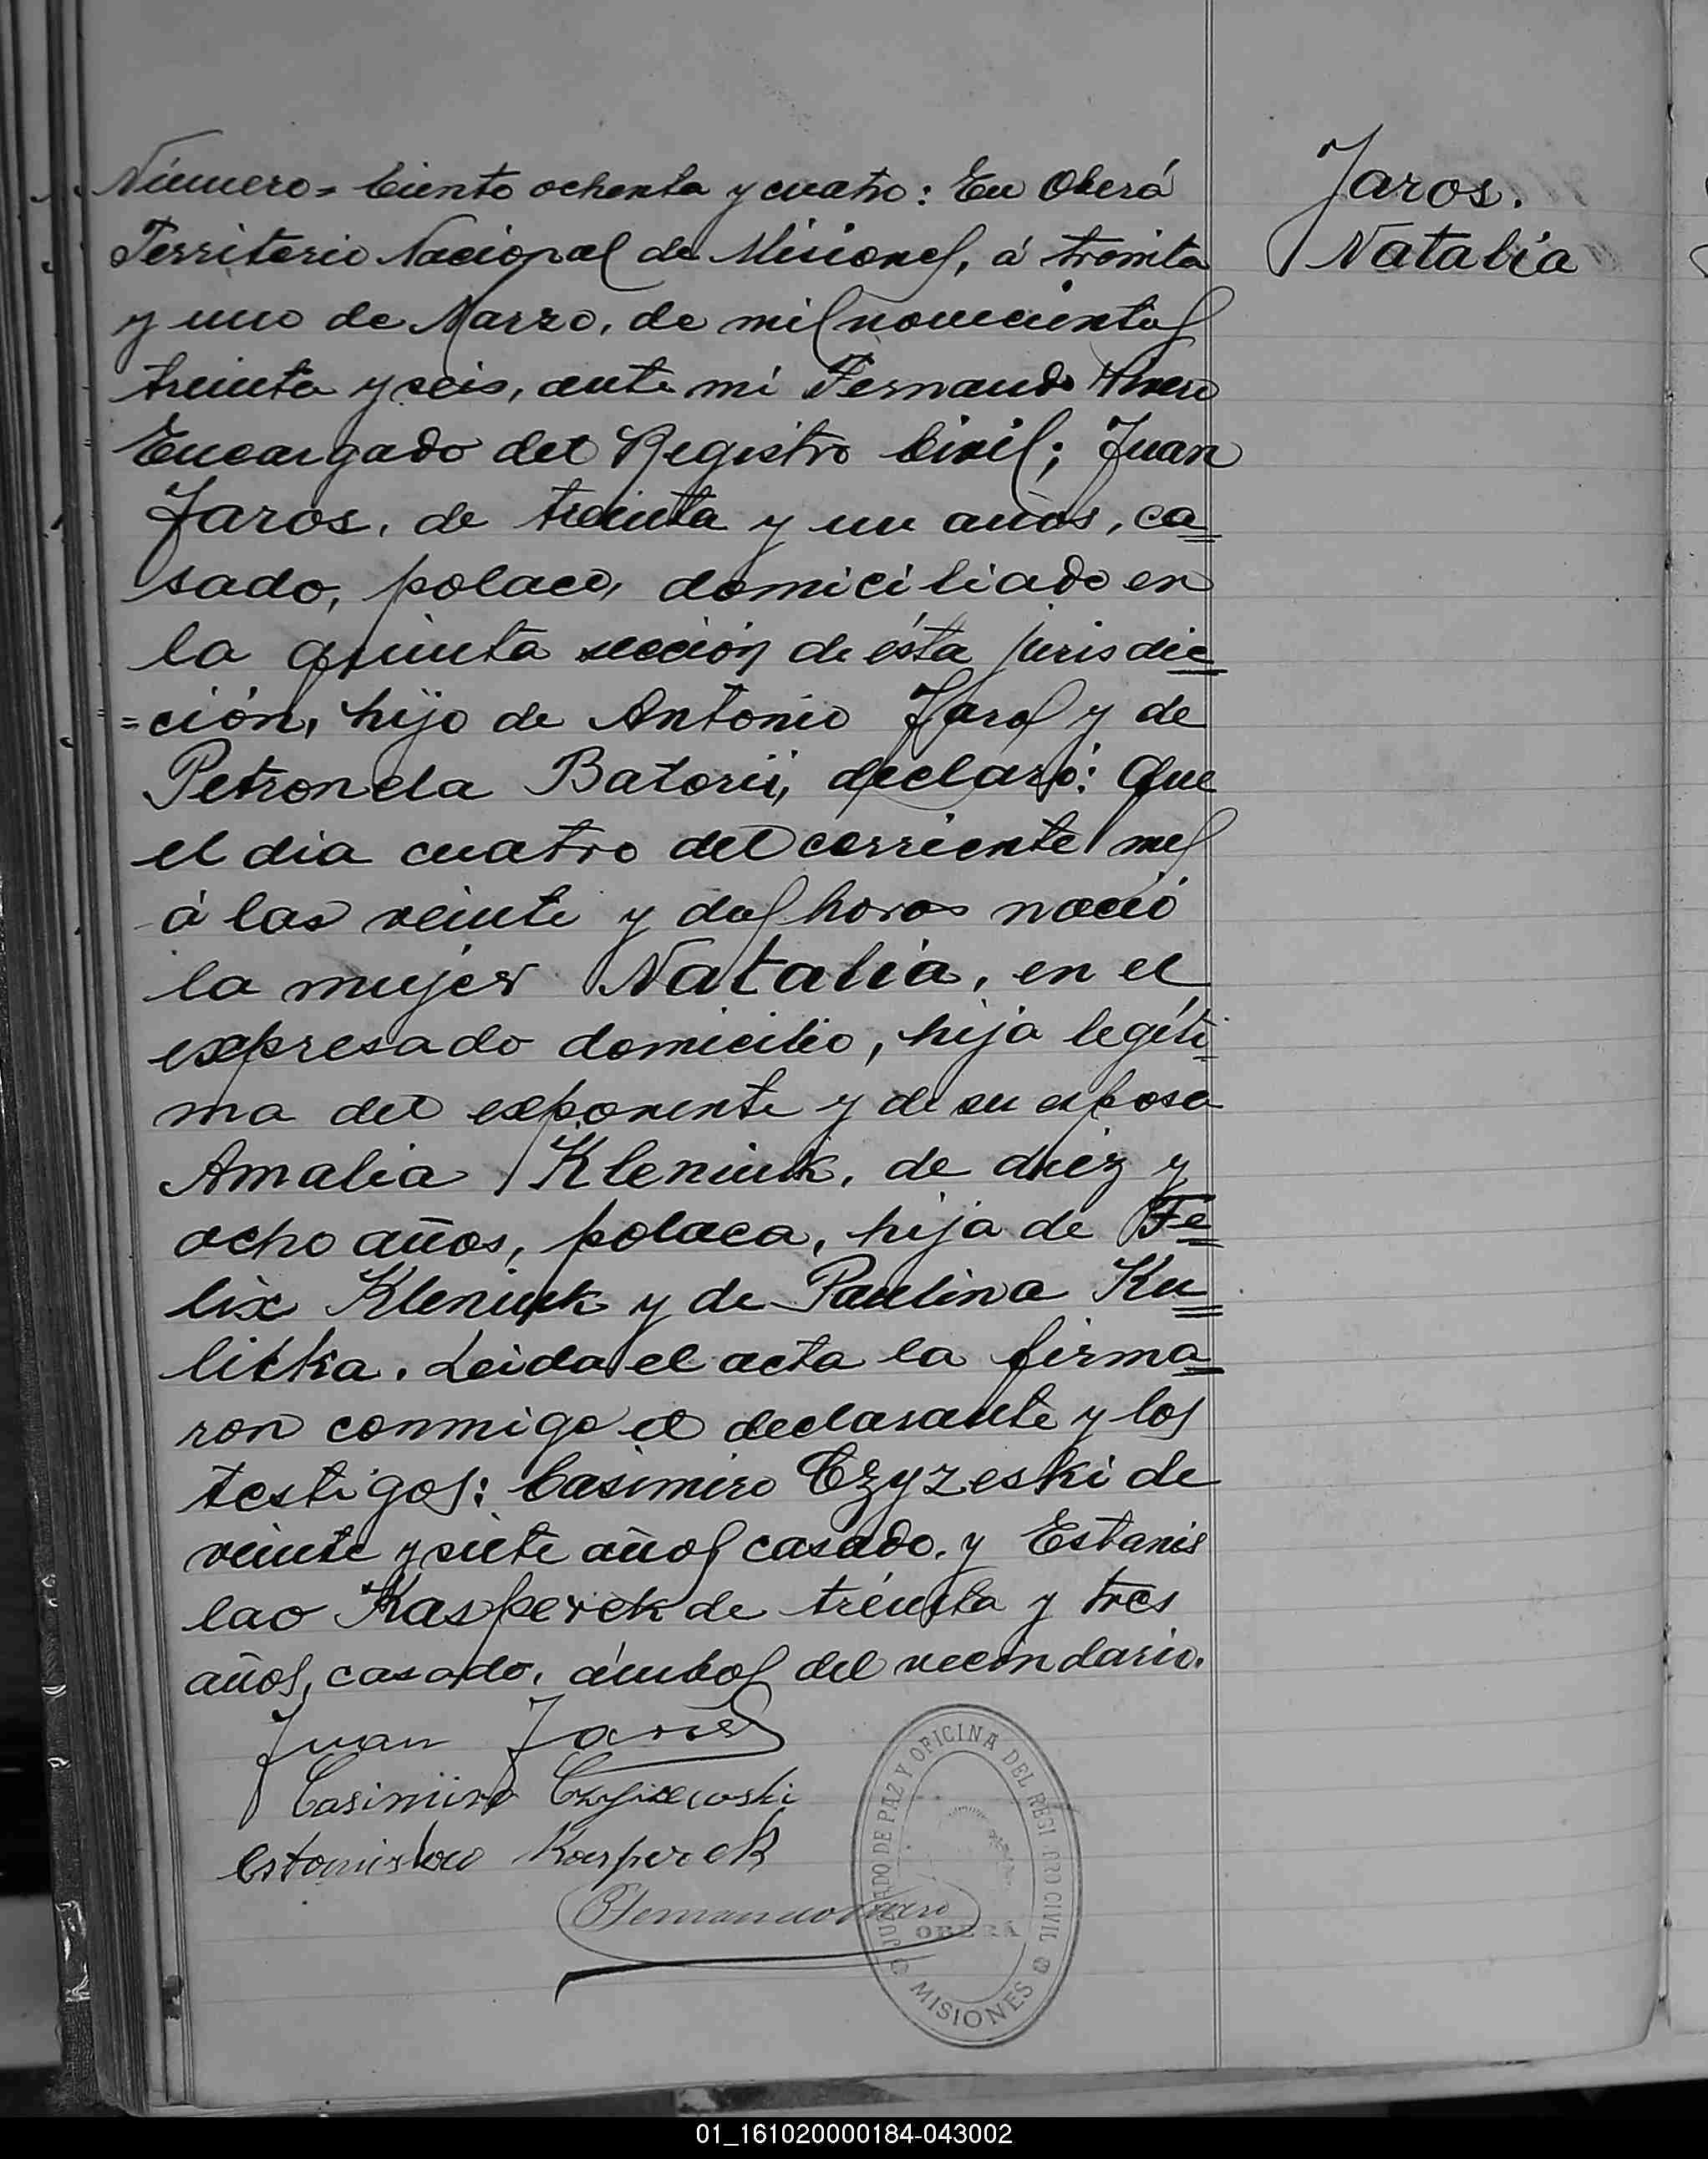 Número = Ciento ochenta y cuatro: En Oberá
Territorio Nacional de Misiones, á treinta
y uno de Marzo, de mil novecientos
treinta y seis, ante mi Fernando
Encargado del Registro Civil; Juan
Jaros, de treinta y un años, ca
sado, polaco, domiciliado en
la quinta sección de ésta jurisdic
=ción, hijo de Antonio Jaros y de
Petronela Batorii, declaró: Que
el dia cuatro del corriente mes
á las veinte y dos horas nació
la mujer Natalia, en el
expresado domicilio, hija legíti
ma del exponente y de su esposa
Amalia Kleniuk, de diez y
ocho años, polaca, hija de Fe
lix Kleniuk y de Paulina Ku
litka. Leida el acta la firma
ron conmigo el declarante y los
testigos: Casimiro Czyzeski de
veinte y siete años casado, y Estanis
lao Kasperek de treinta y tres
años, casado, ámbos del vecindario.
Juan Jaros
Casimiro
Estanislao Kasperek
Fernando
Jaros.
Natalia
JUZGADO DE PAZ Y OFICINA DEL REGISTRO CIVIL
OBERÁ
MISIONES
01_161020000184-043002